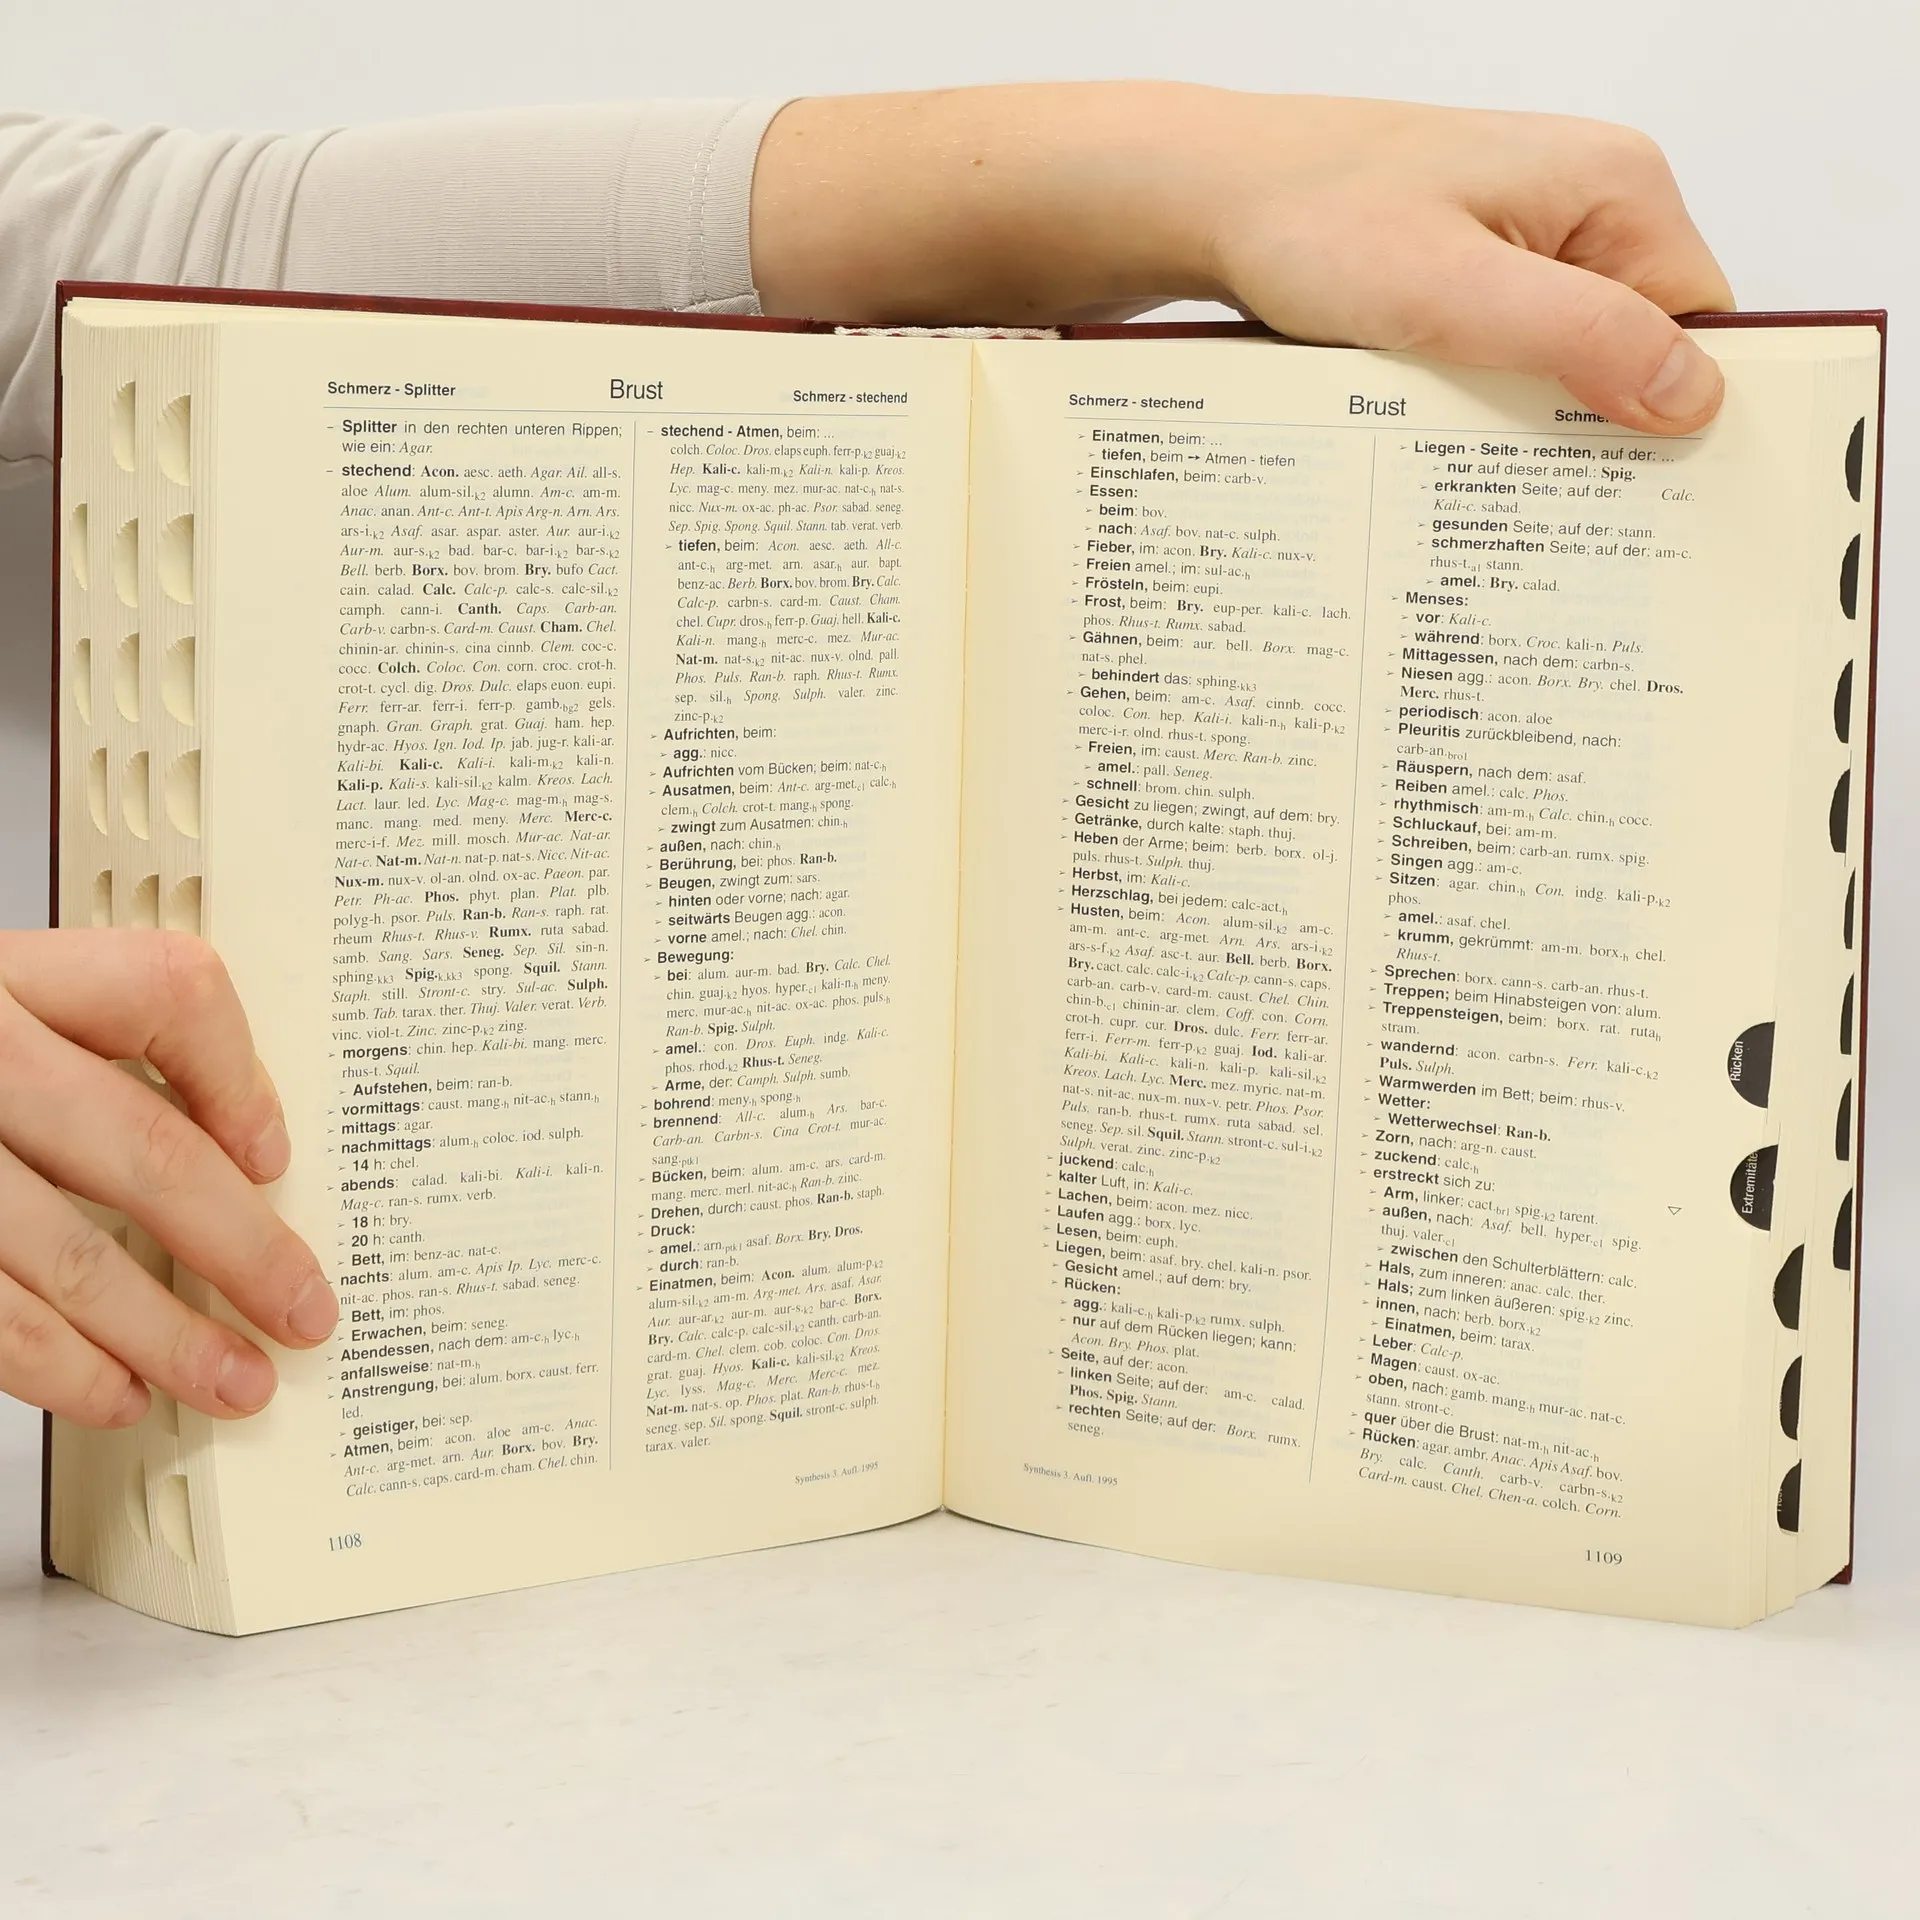 Schmerz - Splitter
Brust
Schmerz - stechend
– Splitter in den rechten unteren Rippen;
wie ein: Agar.
– stechend: Acon. aesc. aeth. Agar. Ail. all-s.
aloe Alum. alum-sil.k2 alumn. Am-c. am-m.
Anac. anan. Ant-c. Ant-t. Apis Arg-n. Arn. Ars.
ars-i.k2 Asaf. asar. aspar. aster. Aur. aur-i.k2
Aur-m. aur-s.k2 bad. bar-c. bar-i.k2 bar-s.k2
Bell. berb. Borx. bov. brom. Bry. bufo Cact.
cain. calad. Calc. Calc-p. calc-s. calc-sil.k2
camph. cann-i. Canth. Caps. Carb-an.
Carb-v. carbn-s. Card-m. Caust. Cham. Chel.
chinin-ar. chinin-s. cina cinnb. Clem. coc-c.
cocc. Colch. Coloc. Con. corn. croc. crot-h.
crot-t. cycl. dig. Dros. Dulc. elaps euon. eupi.
Ferr. ferr-ar. ferr-i. ferr-p. gamb.bg2 gels.
gnaph. Gran. Graph. grat. Guaj. ham. hep.
hydr-ac. Hyos. Ign. Iod. Ip. jab. jug-r. kali-ar.
Kali-bi. Kali-c. Kali-i. kali-m.k2 kali-n.
Kali-p. Kali-s. kali-sil.k2 kalm. Kreos. Lach.
Lact. laur. led. Lyc. Mag-c. mag-m.h mag-s.
manc. mang. med. meny. Merc. Merc-c.
merc-i-f. Mez. mill. mosch. Mur-ac. Nat-ar.
Nat-c. Nat-m. Nat-n. nat-p. nat-s. Nicc. Nit-ac.
Nux-m. nux-v. ol-an. olnd. ox-ac. Paeon. par.
Petr. Ph-ac. Phos. phyt. plan. Plat. plb.
polyg-h. psor. Puls. Ran-b. Ran-s. raph. rat.
rheum Rhus-t. Rhus-v. Rumx. ruta sabad.
samb. Sang. Sars. Seneg. Sep. Sil. sin-n.
sphing.kk3 Spig.k,kk3 spong. Squil. Stann.
Staph. still. Stront-c. stry. Sul-ac. Sulph.
sumb. Tab. tarax. ther. Thuj. Valer. verat. Verb.
vinc. viol-t. Zinc. zinc-p.k2 zing.
➢ morgens: chin. hep. Kali-bi. mang. merc.
rhus-t. Squil.
➢ Aufstehen, beim: ran-b.
➢ vormittags: caust. mang.h nit-ac.h stann.h
➢ mittags: agar.
➢ nachmittags: alum.h coloc. iod. sulph.
➢ 14 h: chel.
➢ abends: calad. kali-bi. Kali-i. kali-n.
Mag-c. ran-s. rumx. verb.
➢ 18 h: bry.
➢ 20 h: canth.
Bett, im: benz-ac. nat-c.
nachts: alum. am-c. Apis Ip. Lyc. merc-c.
nit-ac. phos. ran-s. Rhus-t. sabad. seneg.
Bett, im: phos.
➢ Erwachen, beim: seneg.
➢ Abendessen, nach dem: am-c.h lyc.h
➢ anfallsweise: nat-m.h
➢ Anstrengung, bei: alum. borx. caust. ferr.
led.
➢ geistiger, bei: sep.
➢ Atmen, beim: acon. aloe am-c. Anac.
Ant-c. arg-met. arn. Aur. Borx. bov. Bry.
Calc. cann-s. caps. card-m. cham. Chel. chin.
– stechend - Atmen, beim: ...
colch. Coloc. Dros. elaps euph. ferr-p.k2 guaj.k2
Hep. Kali-c. kali-m.k2 Kali-n. kali-p. Kreos.
Lyc. mag-c. meny. mez. mur-ac. nat-c.h nat-s.
nicc. Nux-m. ox-ac. ph-ac. Psor. sabad. seneg.
Sep. Spig. Spong. Squil. Stann. tab. verat. verb.
➢ tiefen, beim: Acon. aesc. aeth. All-c.
ant-c.h arg-met. arn. asar.h aur. bapt.
benz-ac. Berb. Borx. bov. brom. Bry. Calc.
Calc-p. carbn-s. card-m. Caust. Cham.
chel. Cupr. dros.h ferr-p. Guaj. hell. Kali-c.
Kali-n. mang.h merc-c. mez. Mur-ac.
Nat-m. nat-s.k2 nit-ac. nux-v. olnd. pall.
Phos. Puls. Ran-b. raph. Rhus-t. Rumx.
sep. sil.h Spong. Sulph. valer. zinc.
zinc-p.k2
➢ Aufrichten, beim:
➢ agg.: nicc.
➢ Aufrichten vom Bücken; beim: nat-c.h
➢ Ausatmen, beim: Ant-c. arg-met.c1 calc.h
clem.h Colch. crot-t. mang.h spong.
➢ zwingt zum Ausatmen: chin.h
➢ außen, nach: chin.h
➢ Berührung, bei: phos. Ran-b.
➢ Beugen, zwingt zum: sars.
➢ hinten oder vorne; nach: agar.
➢ seitwärts Beugen agg.: acon.
➢ vorne amel.; nach: Chel. chin.
➢ Bewegung:
➢ bei: alum. aur-m. bad. Bry. Calc. Chel.
chin. guaj.k2 hyos. hyper.c1 kali-n.h meny.
merc. mur-ac.h nit-ac. ox-ac. phos. puls.h
Ran-b. Spig. Sulph.
➢ amel.: con. Dros. Euph. indg. Kali-c.
phos. rhod.k2 Rhus-t. Seneg.
➢ Arme, der: Camph. Sulph. sumb.
➢ bohrend: meny.h spong.h
➢ brennend: All-c. alum.h Ars. bar-c.
Carb-an. Carbn-s. Cina Crot-t. mur-ac.
sang.ptk1
➢ Bücken, beim: alum. am-c. ars. card-m.
mang. merc. merl. nit-ac.h Ran-b. zinc.
➢ Drehen, durch: caust. phos. Ran-b. staph.
➢ Druck:
➢ amel.: arn.ptk1 asaf. Borx. Bry. Dros.
➢ durch: ran-b.
➢ Einatmen, beim: Acon. alum. alum-p.k2
alum-sil.k2 am-m. Arg-met. Ars. asaf. Asar.
Aur. aur-ar.k2 aur-m. aur-s.k2 bar-c. Borx.
Bry. Calc. calc-p. calc-sil.k2 canth. carb-an.
card-m. Chel. clem. cob. coloc. Con. Dros.
grat. guaj. Hyos. Kali-c. kali-sil.k2 Kreos.
Lyc. lyss. Mag-c. Merc. Merc-c. mez.
Nat-m. nat-s. op. Phos. plat. Ran-b. rhus-t.h
seneg. sep. Sil. spong. Squil. stront-c. sulph.
tarax. valer.
Synthesis 3. Aufl. 1995
1108
Schmerz - stechend
Brust
Schme
➢ Einatmen, beim: ...
➢ tiefen, beim → Atmen - tiefen
➢ Einschlafen, beim: carb-v.
➢ Essen:
➢ beim: bov.
➢ nach: Asaf. bov. nat-c. sulph.
➢ Fieber, im: acon. Bry. Kali-c. nux-v.
➢ Freien amel.; im: sul-ac.h
➢ Frösteln, beim: eupi.
➢ Frost, beim: Bry. eup-per. kali-c. lach.
phos. Rhus-t. Rumx. sabad.
➢ Gähnen, beim: aur. bell. Borx. mag-c.
nat-s. phel.
➢ behindert das: sphing.kk3
➢ Gehen, beim: am-c. Asaf. cinnb. cocc.
coloc. Con. hep. Kali-i. kali-n.h kali-p.k2
merc-i-r. olnd. rhus-t. spong.
➢ Freien, im: caust. Merc. Ran-b. zinc.
➢ amel.: pall. Seneg.
➢ schnell: brom. chin. sulph.
➢ Gesicht zu liegen; zwingt, auf dem: bry.
➢ Getränke, durch kalte: staph. thuj.
➢ Heben der Arme; beim: berb. borx. ol-j.
puls. rhus-t. Sulph. thuj.
➢ Herbst, im: Kali-c.
➢ Herzschlag, bei jedem: calc-act.h
➢ Husten, beim: Acon. alum-sil.k2 am-c.
am-m. ant-c. arg-met. Arn. Ars. ars-i.k2
ars-s-f.k2 Asaf. asc-t. aur. Bell. berb. Borx.
Bry. cact. calc. calc-i.k2 Calc-p. cann-s. caps.
carb-an. carb-v. card-m. caust. Chel. Chin.
chin-b.c1 chinin-ar. clem. Coff. con. Corn.
crot-h. cupr. cur. Dros. dulc. Ferr. ferr-ar.
ferr-i. Ferr-m. ferr-p.k2 guaj. Iod. kali-ar.
Kali-bi. Kali-c. kali-n. kali-p. kali-sil.k2
Kreos. Lach. Lyc. Merc. mez. myric. nat-m.
nat-s. nit-ac. nux-m. nux-v. petr. Phos. Psor.
Puls. ran-b. rhus-t. rumx. ruta sabad. sel.
seneg. Sep. sil. Squil. Stann. stront-c. sul-i.k2
Sulph. verat. zinc. zinc-p.k2
➢ juckend: calc.h
➢ kalter Luft, in: Kali-c.
➢ Lachen, beim: acon. mez. nicc.
➢ Laufen agg.: borx. lyc.
➢ Lesen, beim: euph.
➢ Liegen, beim: asaf. bry. chel. kali-n. psor.
➢ Gesicht amel.; auf dem: bry.
➢ Rücken:
➢ agg.: kali-c.h kali-p.k2 rumx. sulph.
➢ nur auf dem Rücken liegen; kann:
Acon. Bry. Phos. plat.
➢ Seite, auf der: acon.
➢ linken Seite; auf der: am-c. calad.
Phos. Spig. Stann.
➢ rechten Seite; auf der: Borx. rumx.
seneg.
➢ Liegen - Seite - rechten, auf der: ...
➢ nur auf dieser amel.: Spig.
➢ erkrankten Seite; auf der: Calc.
Kali-c. sabad.
➢ gesunden Seite; auf der: stann.
➢ schmerzhaften Seite; auf der: am-c.
rhus-t.a1 stann.
➢ amel.: Bry. calad.
➢ Menses:
➢ vor: Kali-c.
➢ während: borx. Croc. kali-n. Puls.
➢ Mittagessen, nach dem: carbn-s.
➢ Niesen agg.: acon. Borx. Bry. chel. Dros.
Merc. rhus-t.
➢ periodisch: acon. aloe
➢ Pleuritis zurückbleibend, nach:
carb-an.bro1
➢ Räuspern, nach dem: asaf.
➢ Reiben amel.: calc. Phos.
➢ rhythmisch: am-m.h Calc. chin.h cocc.
➢ Schluckauf, bei: am-m.
➢ Schreiben, beim: carb-an. rumx. spig.
➢ Singen agg.: am-c.
➢ Sitzen: agar. chin.h Con. indg. kali-p.k2
phos.
➢ amel.: asaf. chel.
➢ krumm, gekrümmt: am-m. borx.h chel.
Rhus-t.
➢ Sprechen: borx. cann-s. carb-an. rhus-t.
➢ Treppen; beim Hinabsteigen von: alum.
➢ Treppensteigen, beim: borx. rat. ruta h
stram.
➢ wandernd: acon. carbn-s. Ferr. kali-c.k2
Puls. Sulph.
➢ Warmwerden im Bett; beim: rhus-v.
➢ Wetter:
➢ Wetterwechsel: Ran-b.
➢ Zorn, nach: arg-n. caust.
➢ zuckend: calc.h
➢ erstreckt sich zu:
➢ Arm, linker: cact.br1 spig.k2 tarent.
➢ außen, nach: Asaf. bell. hyper.c1 spig.
thuj. valer.c1
➢ zwischen den Schulterblättern: calc.
➢ Hals, zum inneren: anac. calc. ther.
➢ Hals; zum linken äußeren: spig.k2 zinc.
➢ innen, nach: berb. borx.k2
➢ Einatmen, beim: tarax.
➢ Leber: Calc-p.
➢ Magen: caust. ox-ac.
➢ oben, nach: gamb. mang.h mur-ac. nat-c.
stann. stront-c.
➢ quer über die Brust: nat-m.h nit-ac.h
➢ Rücken: agar. ambr. Anac. Apis Asaf. bov.
Bry. calc. Canth. carb-v. carbn-s.k2
Card-m. caust. Chel. Chen-a. colch. Corn.
Synthesis 3. Aufl. 1995
1109
Rücken
Extremitäte